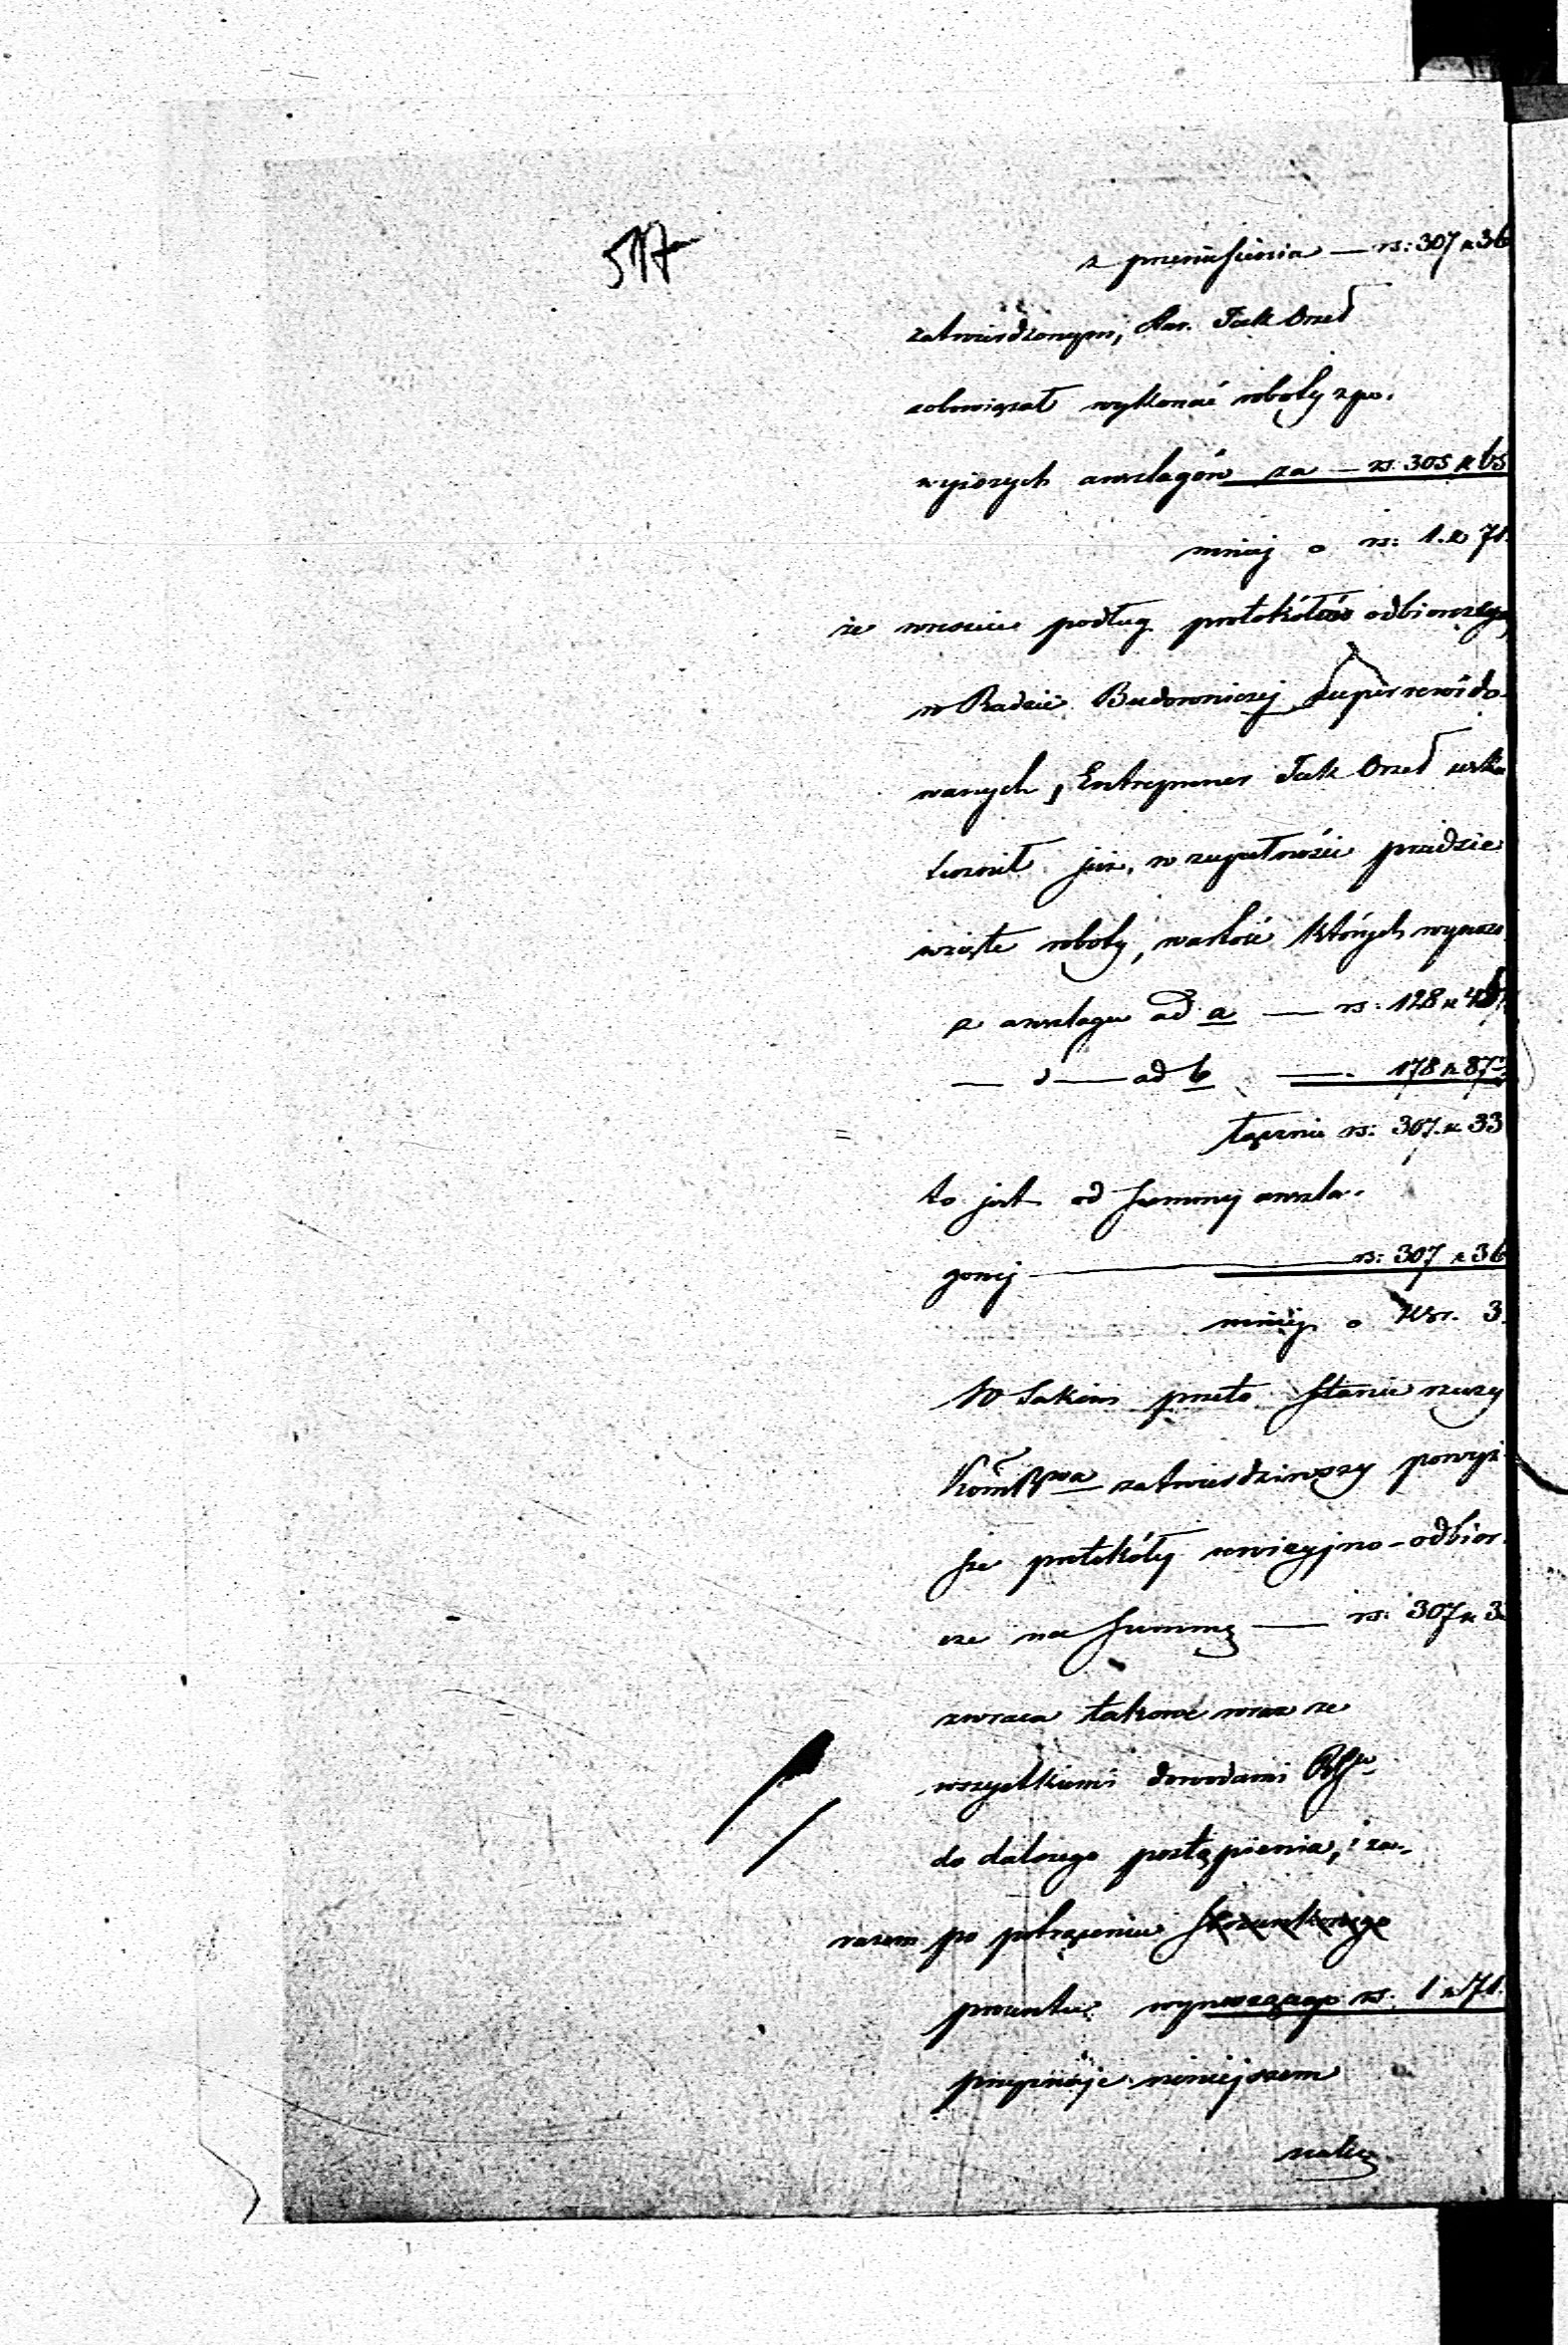 517
z przeniesienia — rs: 307 k 36
zatwierdzonym, Star. Icek Orzeł
zobowiązał wykonać roboty z po-
wyższych anszlagów za — rs. 305 k 65
mniej o rs: 1. k 71.
że wreszcie podług protokółów odbiorczych
w Radzie Budowniczej superrewido-
wanych, Entreprener Icek Orzeł usku
tecznił już, w zupełności przedsię
wzięte roboty, wartość których wynosi
z anszlagu ad a — rs. 128 k 46
— d — ad b — 178 k 87
łącznie rs: 307. k 33
to jest od summy anszla-
gowej — rs: 307 k 36
mniej o Ksr. 3.
W takim przeto stanie rzeczy
zatwierdziwszy powyż
sze protokóły rewizyjno-odbior-
cze na summę — rs: 307 k 3
zwraca takowe wraz ze
wszystkiemi dowodami
do dalszego postąpienia, i za-
razem po potrąceniu Szacunkowego
procentu wynoszącego rs. 1 k 71.
przyznaje niniejszem